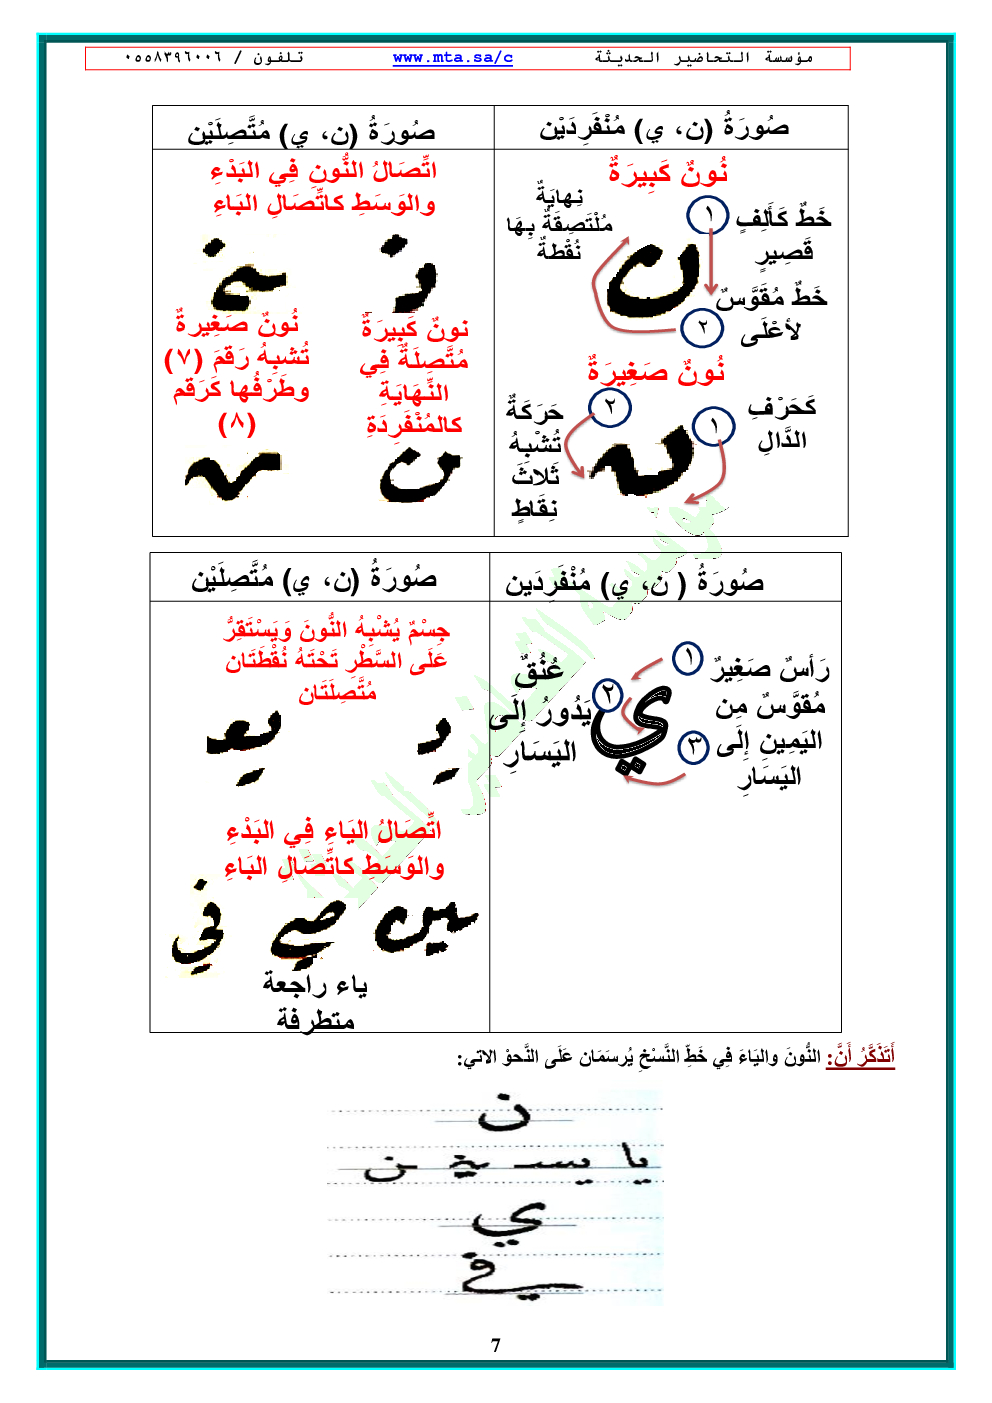 مؤسسة التحاضير الحديثة www.mta.sa/c تلفون / ٠٥٥٨٣٩٦٠٠٦
صُورَةُ (ن، ي) مُنْفَرِدَيْن
صُورَةُ (ن، ي) مُتَّصِلَيْن
نُونٌ كَبِيرَةٌ
خَطٌ كَأَلِفٍ
قَصِيرٍ
١
نِهايَةٌ
مُلْتَصِقَةٌ بِهَا
نُقْطةٌ
ن
خَطٌ مُقَوَّسٌ
لأعْلَى
٢
نُونٌ صَغِيرَةٌ
كَحَرْفِ
الدَّالِ
١
٢
حَرَكَةٌ
تُشْبِهُ
ثَلاثَ
نِقَاطٍ
اتِّصَالُ النُّونِ فِي البَدْءِ
والوَسَطِ كاتِّصَالِ البَاءِ
نونٌ كَبِيرَةٌ
مُتَّصِلَةٌ فِي
النِّهَايَةِ
كالمُنْفَرِدَةِ
نُونٌ صَغِيرةٌ
تُشبِهُ رَقمَ (٧)
وطَرْفُها كَرَقم
(٨)
صُورَةُ ( ن، ي) مُنْفَرِدَين
صُورَةُ (ن، ي) مُتَّصِلَيْن
رَأسٌ صَغِيرٌ
مُقوَّسٌ مِن
اليَمِينِ إِلَى
اليَسَارِ
١
٢
٣
ي
عُنُقٌ
يَدُورُ إِلَى
اليَسَارِ
جِسْمٌ يُشْبِهُ النُّونَ وَيَسْتَقِرُّ
عَلَى السَّطْرِ تَحْتَهُ نُقْطَتَان
مُتَّصِلَتَان
اتِّصَالُ اليَاءِ فِي البَدْءِ
والوَسَطِ كاتِّصَالِ البَاءِ
في
ياء راجعة
متطرفة
أَتَذَكَّرُ أَنَّ: النُّونَ واليَاءَ فِي خَطِّ النَّسْخِ يُرسَمَان عَلَى النَّحوْ الاتي:
ن
ي
في
7